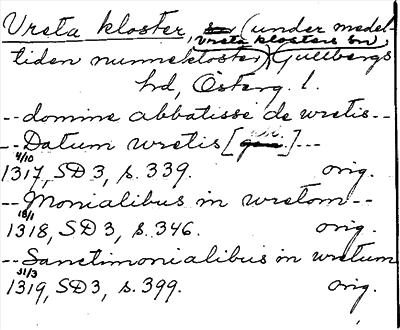 Vreta kloster, (under medel-
Vreta klosters sn,
tiden nunnekloster) Gullbergs
hd, Österg. l.
--domine abbatisse de wretis--
--Datum wretis [ ]---
4/10
1317, SD 3, s. 339. orig.
--Monialibus in wretom--
18/1
1318, SD 3, s. 346. orig.
--Sanctimonialibus in wretum
31/3
1319, SD 3, s. 399. orig.